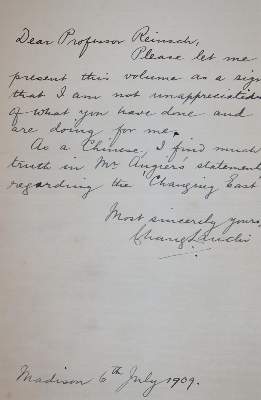 Dear Professor Reinsch,
Please let me
present this volume as a sign
that I am not unappreciative
of what you have done and
are doing for me.
As a Chinese, I find much
truth in Mr Angier's statement
regarding the "Changing East"
Most sincerely yours,
Chang Lauchi
Madison 6th July 1909.